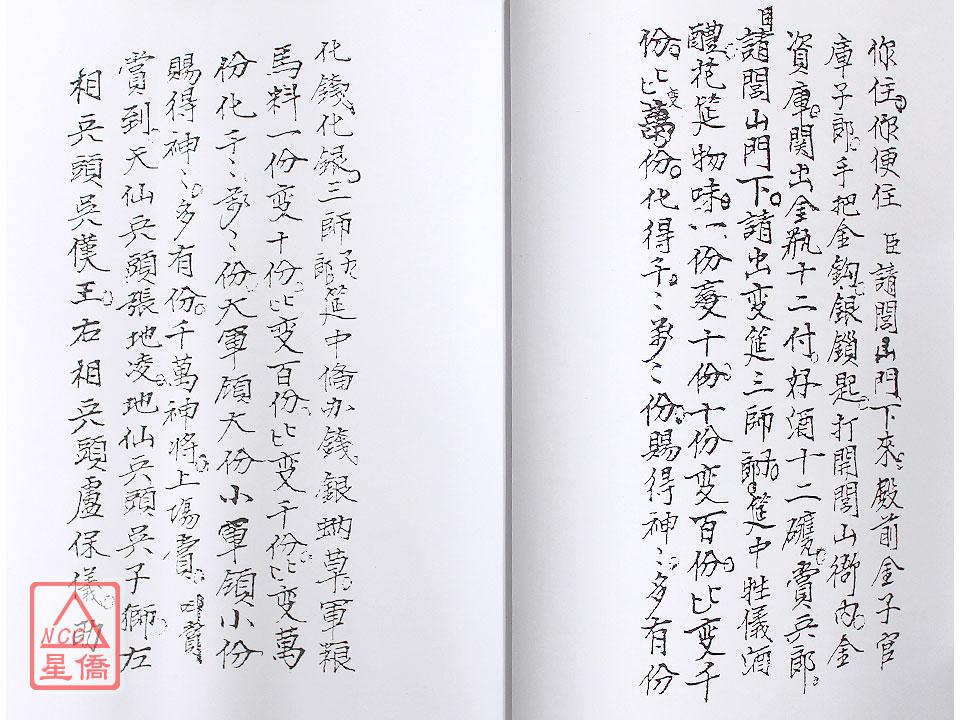 你住你便住 臣請閭山門下來殿前金子官
庫子郎手把金鈎銀鎖匙打開閭山衙內金
資庫関出金瓶十二付好酒十二礶賞兵郎
臣請閭山門下請出变筵三師郎筵中牲儀酒
醴花筵物味一份变十份十份变百份比变千
份比变萬份化得千〻萬〻份賜得神〻多有份
化錢化銀三師郎筵中偹办錢銀蚋草軍粮
馬料一份变十份比变百份比变千份比变萬
份化千〻萬〻份大軍領大份小軍領小份
賜得神〻多有份千萬神將上塲賞
賞到天仙兵頭張地凌地仙兵頭吳子獅左
相兵頭吳僕王右相兵頭盧保儀
NCC
星僑